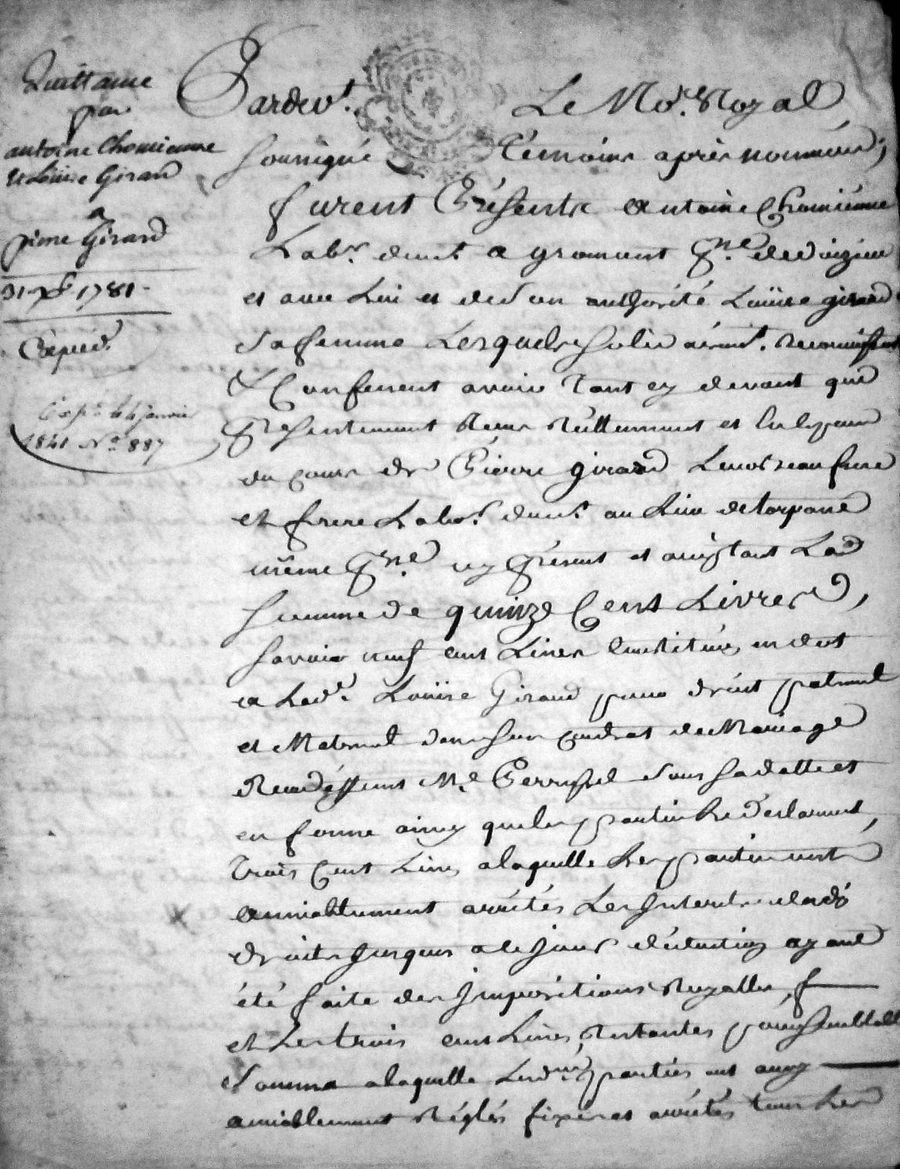 Quittance
par
antoine Chomienne
et Louise Girard
a
pierre Girard
31 xbre 1781
Expiéé.
Exp. le 4 janvier
1841 No. 887
Pardevt. Le Nore. Royal
soussigné témoins après nommés,
furent Présents antoine Chomienne
Labr. demt. a gramont
et avec Lui et de son authorité Loüise girard
sa femme Lesquels solidairemt. reconnoissent
& Confessent avoir tant cy devant que
Présentement Receu Réellement et
du sr. Pierre girard Leur beau frere
et frere Labor. demt. au Lieu de
même Psse. icy Présent et acceptant La
somme de quinze Cent Livres,
savoir neuf cent Livres Constitüés en dot
a Lade. Loüise Girard pour droit paternel
et Maternel dans son contrat de Mariage
Reçu Me. sous sa datte et
en forme ainsy que les parties Le déclarent,
trois Cent Livres a laquelle Les parties ont
amiablement arrétés Les Interets desdts
droits jusques a ce jour déduction ayant
été faite des Impositions Royalles,
et Les trois cent Livres Restantes pour semblable
somme a laquelle Lesdittes parties ont aussy
amiablement Réglés fixés et arrétés tous Les